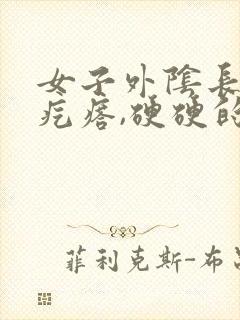 女子外陰長
疙瘩,硬硬的
菲利克斯-布呂